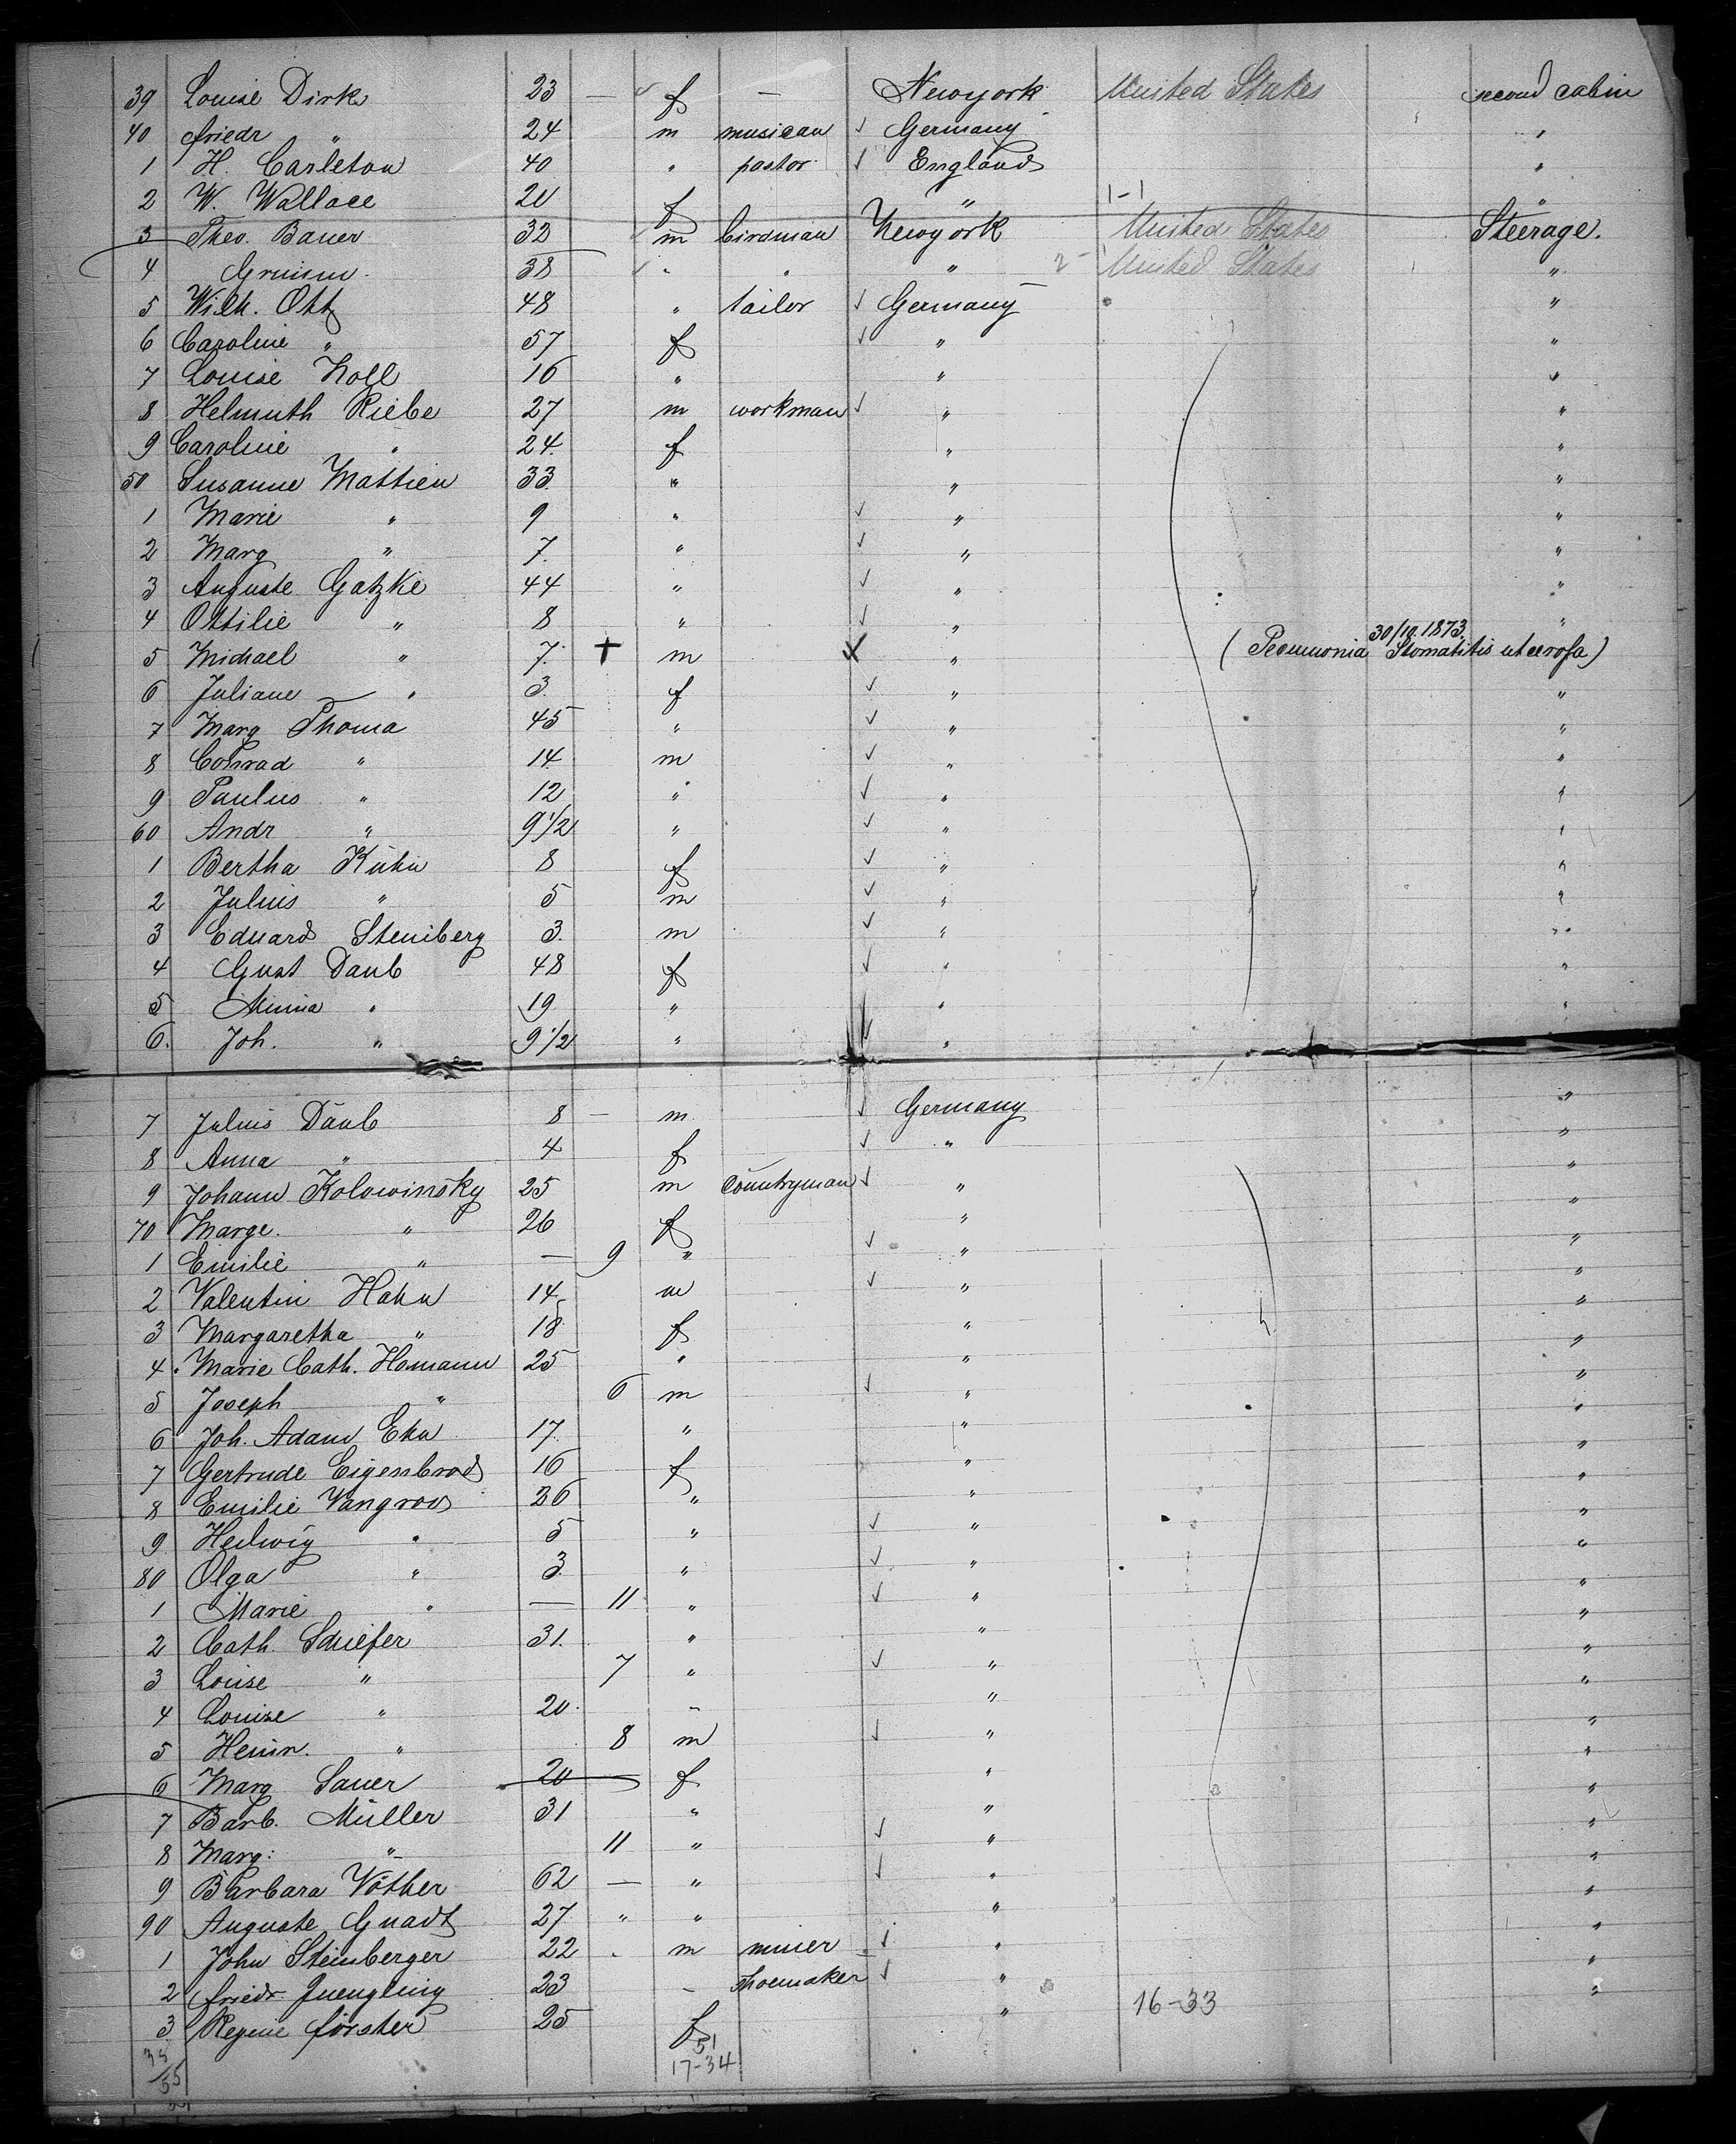 39 Louise Dirks 23 — f — Newyork United States second cabin
40 friedr " 24 m musican Germany "
1 H. Carleton 40 " pastor England "
2 W. Wallace 20 f " 1-1 "
3 Theo. Bauer 32 m birdman Newyork United States Steerage.
4 38 " " " 2 United States "
5 Wilh. Ott 48 " tailor Germany "
6 Caroline " 57 f " "
7 Louise Noll 16 " " "
8 Helmuth Riebe 27 m workman " "
9 Caroline " 24. f " "
50 Susanne Mattieu 33 " " "
1 Marie " 9 " " "
2 Marg " 7. " " "
3 Auguste Gatzke 44 " " "
4 Ottilie " 8 " " "
30/10. 1873.
5 Michael " 7. + m " (Pneumonia Stomatitis ulcerosa)
6 Juliane " 3. f " "
7 Marg Thoma 45 " " "
8 Conrad " 14 m " "
9 Paulus " 12 " " "
60 Andr " 9 1/2 " " "
1 Bertha Kühn 8 f " "
2 Julius " 5 m " "
3 Eduard Steinberg 3. m " "
4 Gust Daub 48 f " "
5 Minna " 19 " " "
6. Joh. " 9 1/2 " " "
7 Julius Daub 8 — m Germany "
8 Anna " 4 f " "
9 Johann Kolowinsky 25 m Countryman " "
70 Marge. " 26 f " "
1 Emilie " — 9 " " "
2 Valentin Hahn 14 m " "
3 Margaretha " 18 f " "
4 Marie Cath. Homann 25 " " "
5 Joseph " 6 m " "
6 Joh. Adam 17. " " "
7 Gertrude Eigenbrod 16 f " "
8 Emilie Vangroos 26 " " "
9 Hedwig " 5 " " "
80 Olga " 3 " " "
1 Marie " — 11 " " "
2 Cath. Schiefer 31. " " "
3 Louise " 7 " " "
4 Louise " 20. " " "
5 Heinr. " 8 m " "
6 Marg Sauer 20 f " "
7 Barb. Müller 31 " " "
8 Marg: " 11 " " "
9 Barbara Vöther 62 — " " "
90 Auguste Gnadt 27 " " " "
1 John Steinberger 22 " m miner " "
2 friedr. Juengling 23 " shoemaker " "
3 Regine förster 25 f " 16-33
51
38 17-34
55